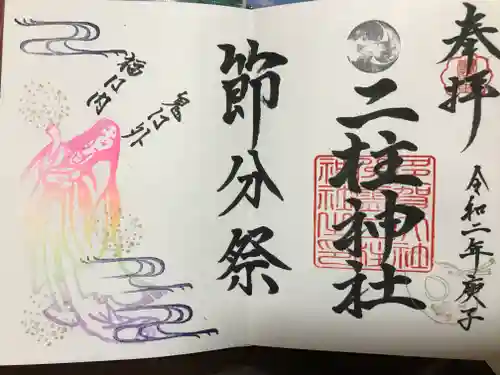 奉拝
令和二年庚子
二柱神社
節分祭
鬼は外
福は内